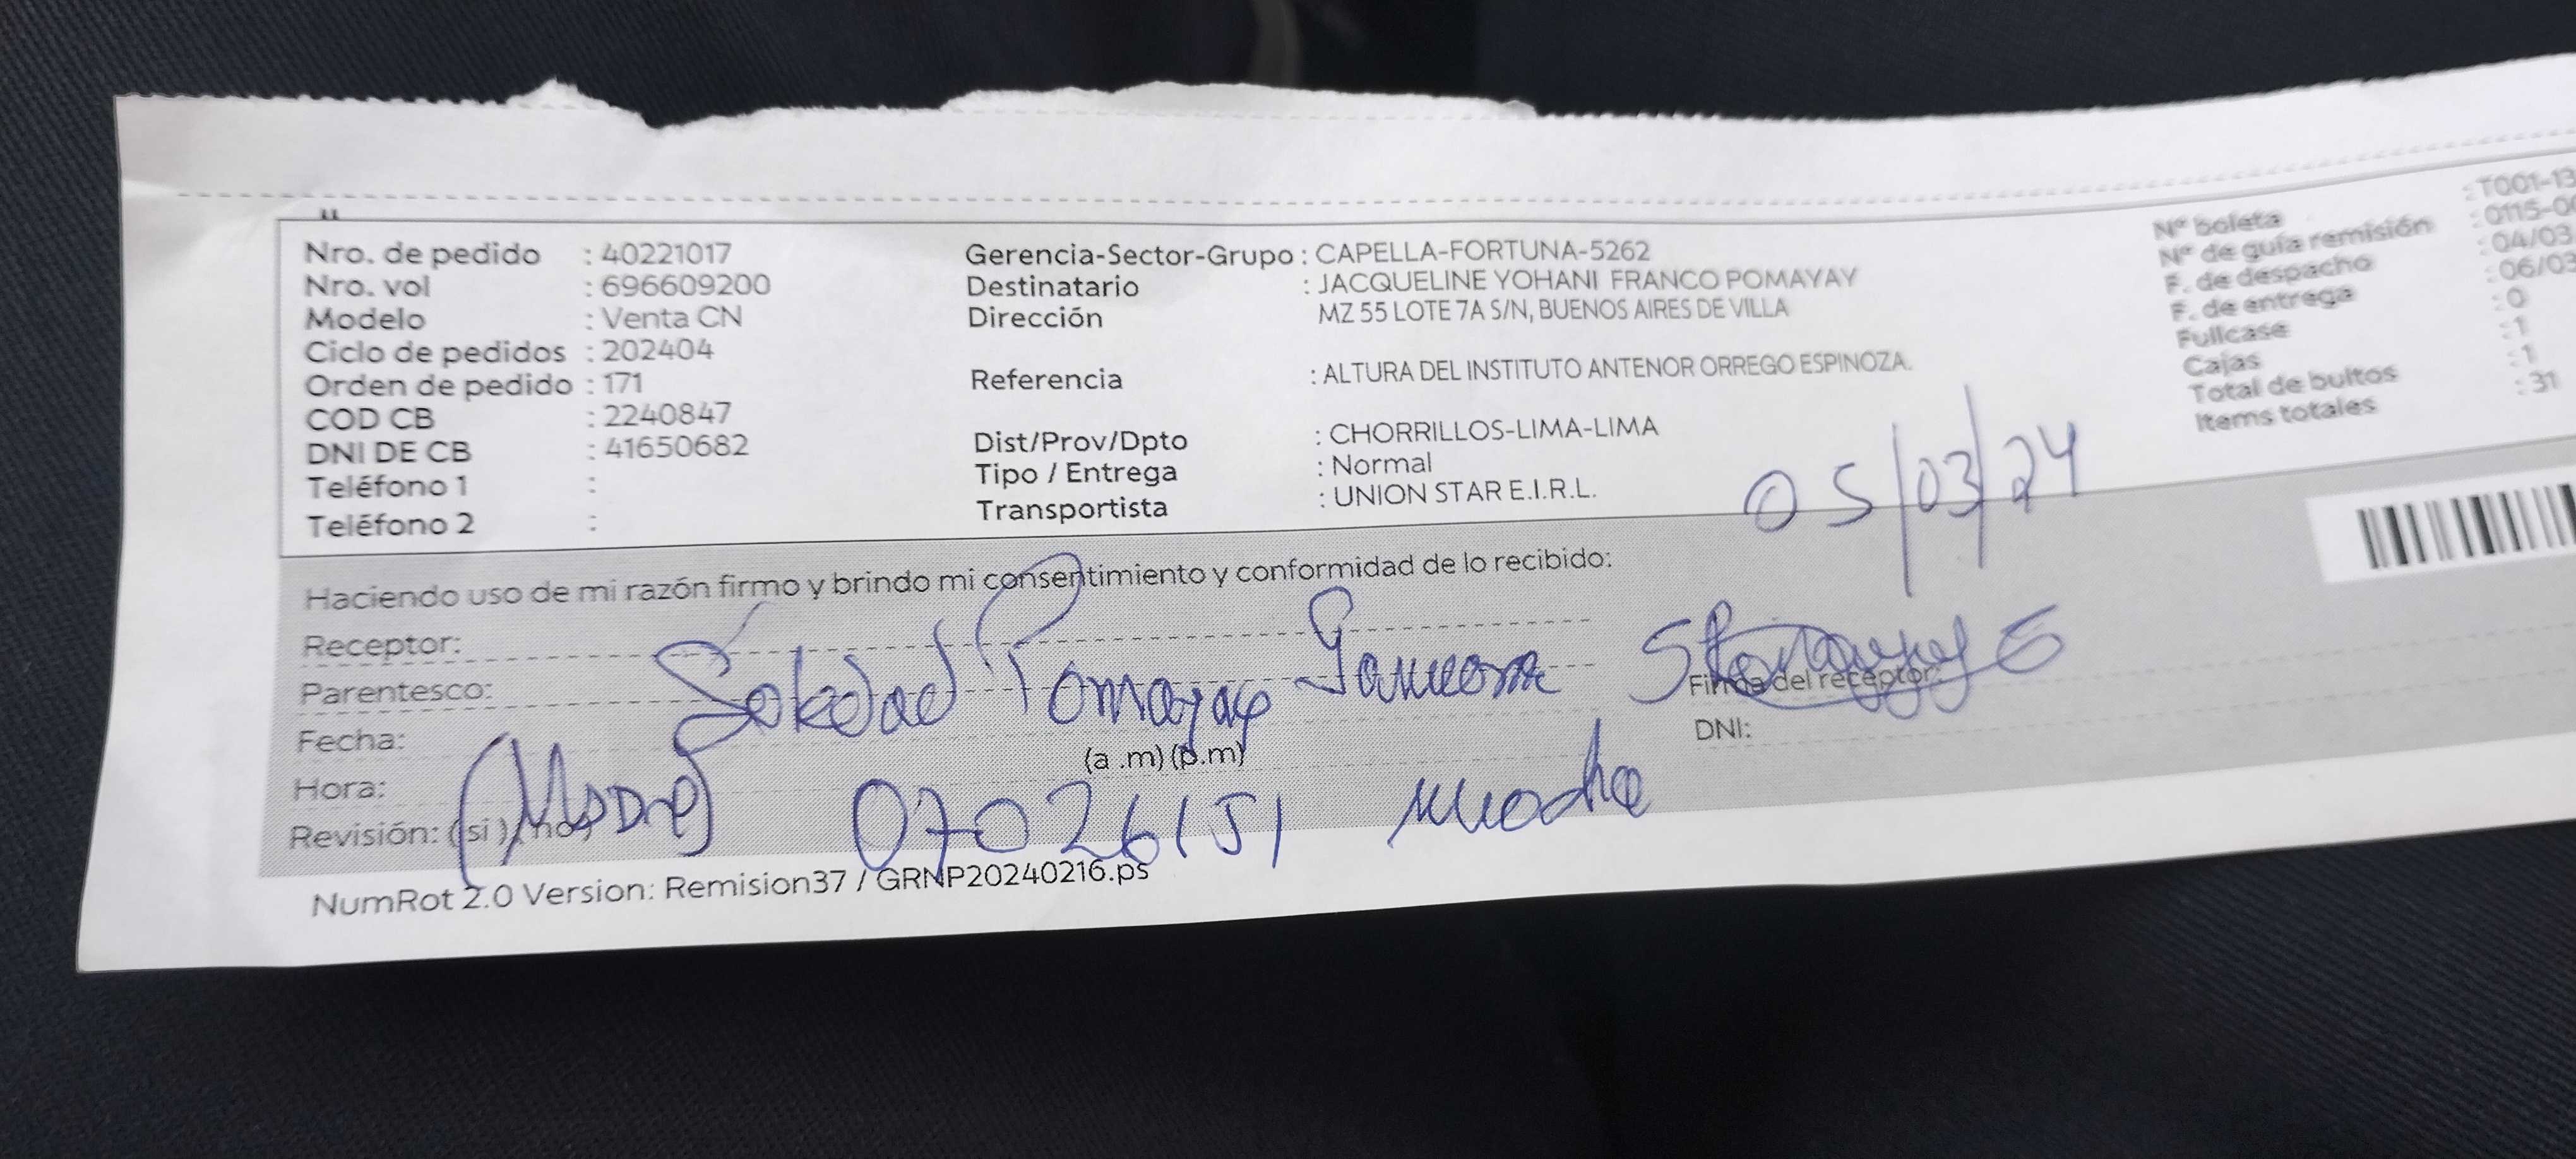 Nro. de pedido : 40221017
Nro. vol : 696609200
Modelo : Venta CN
Ciclo de pedidos : 202404
Orden de pedido : 171
COD CB : 2240847
DNI DE CB : 41650682
Teléfono 1 :
Teléfono 2 :
Gerencia-Sector-Grupo : CAPELLA-FORTUNA-5262
Destinatario : JACQUELINE YOHANI FRANCO POMAYAY
Dirección MZ 55 LOTE 7A S/N, BUENOS AIRES DE VILLA
Referencia : ALTURA DEL INSTITUTO ANTENOR ORREGO ESPINOZA.
Dist/Prov/Dpto : CHORRILLOS-LIMA-LIMA
Tipo / Entrega : Normal
Transportista : UNION STAR E.I.R.L.
Nº boleta : T001-13
Nº de guía remisión : 0115-00
F. de despacho : 04/03
F. de entrega : 06/03
Fullcase : 0
Cajas : 1
Total de bultos : 1
Items totales : 31
05/03/24
Haciendo uso de mi razón firmo y brindo mi consentimiento y conformidad de lo recibido:
Receptor:
Soledad Pomayay
Parentesco:
Firma del receptor:
Fecha:
DNI:
(a .m) (p.m)
Hora:
(Madre) 07026151
Revisión: (si ) (no )
NumRot 2.0 Version: Remision37 / GRNP20240216.ps